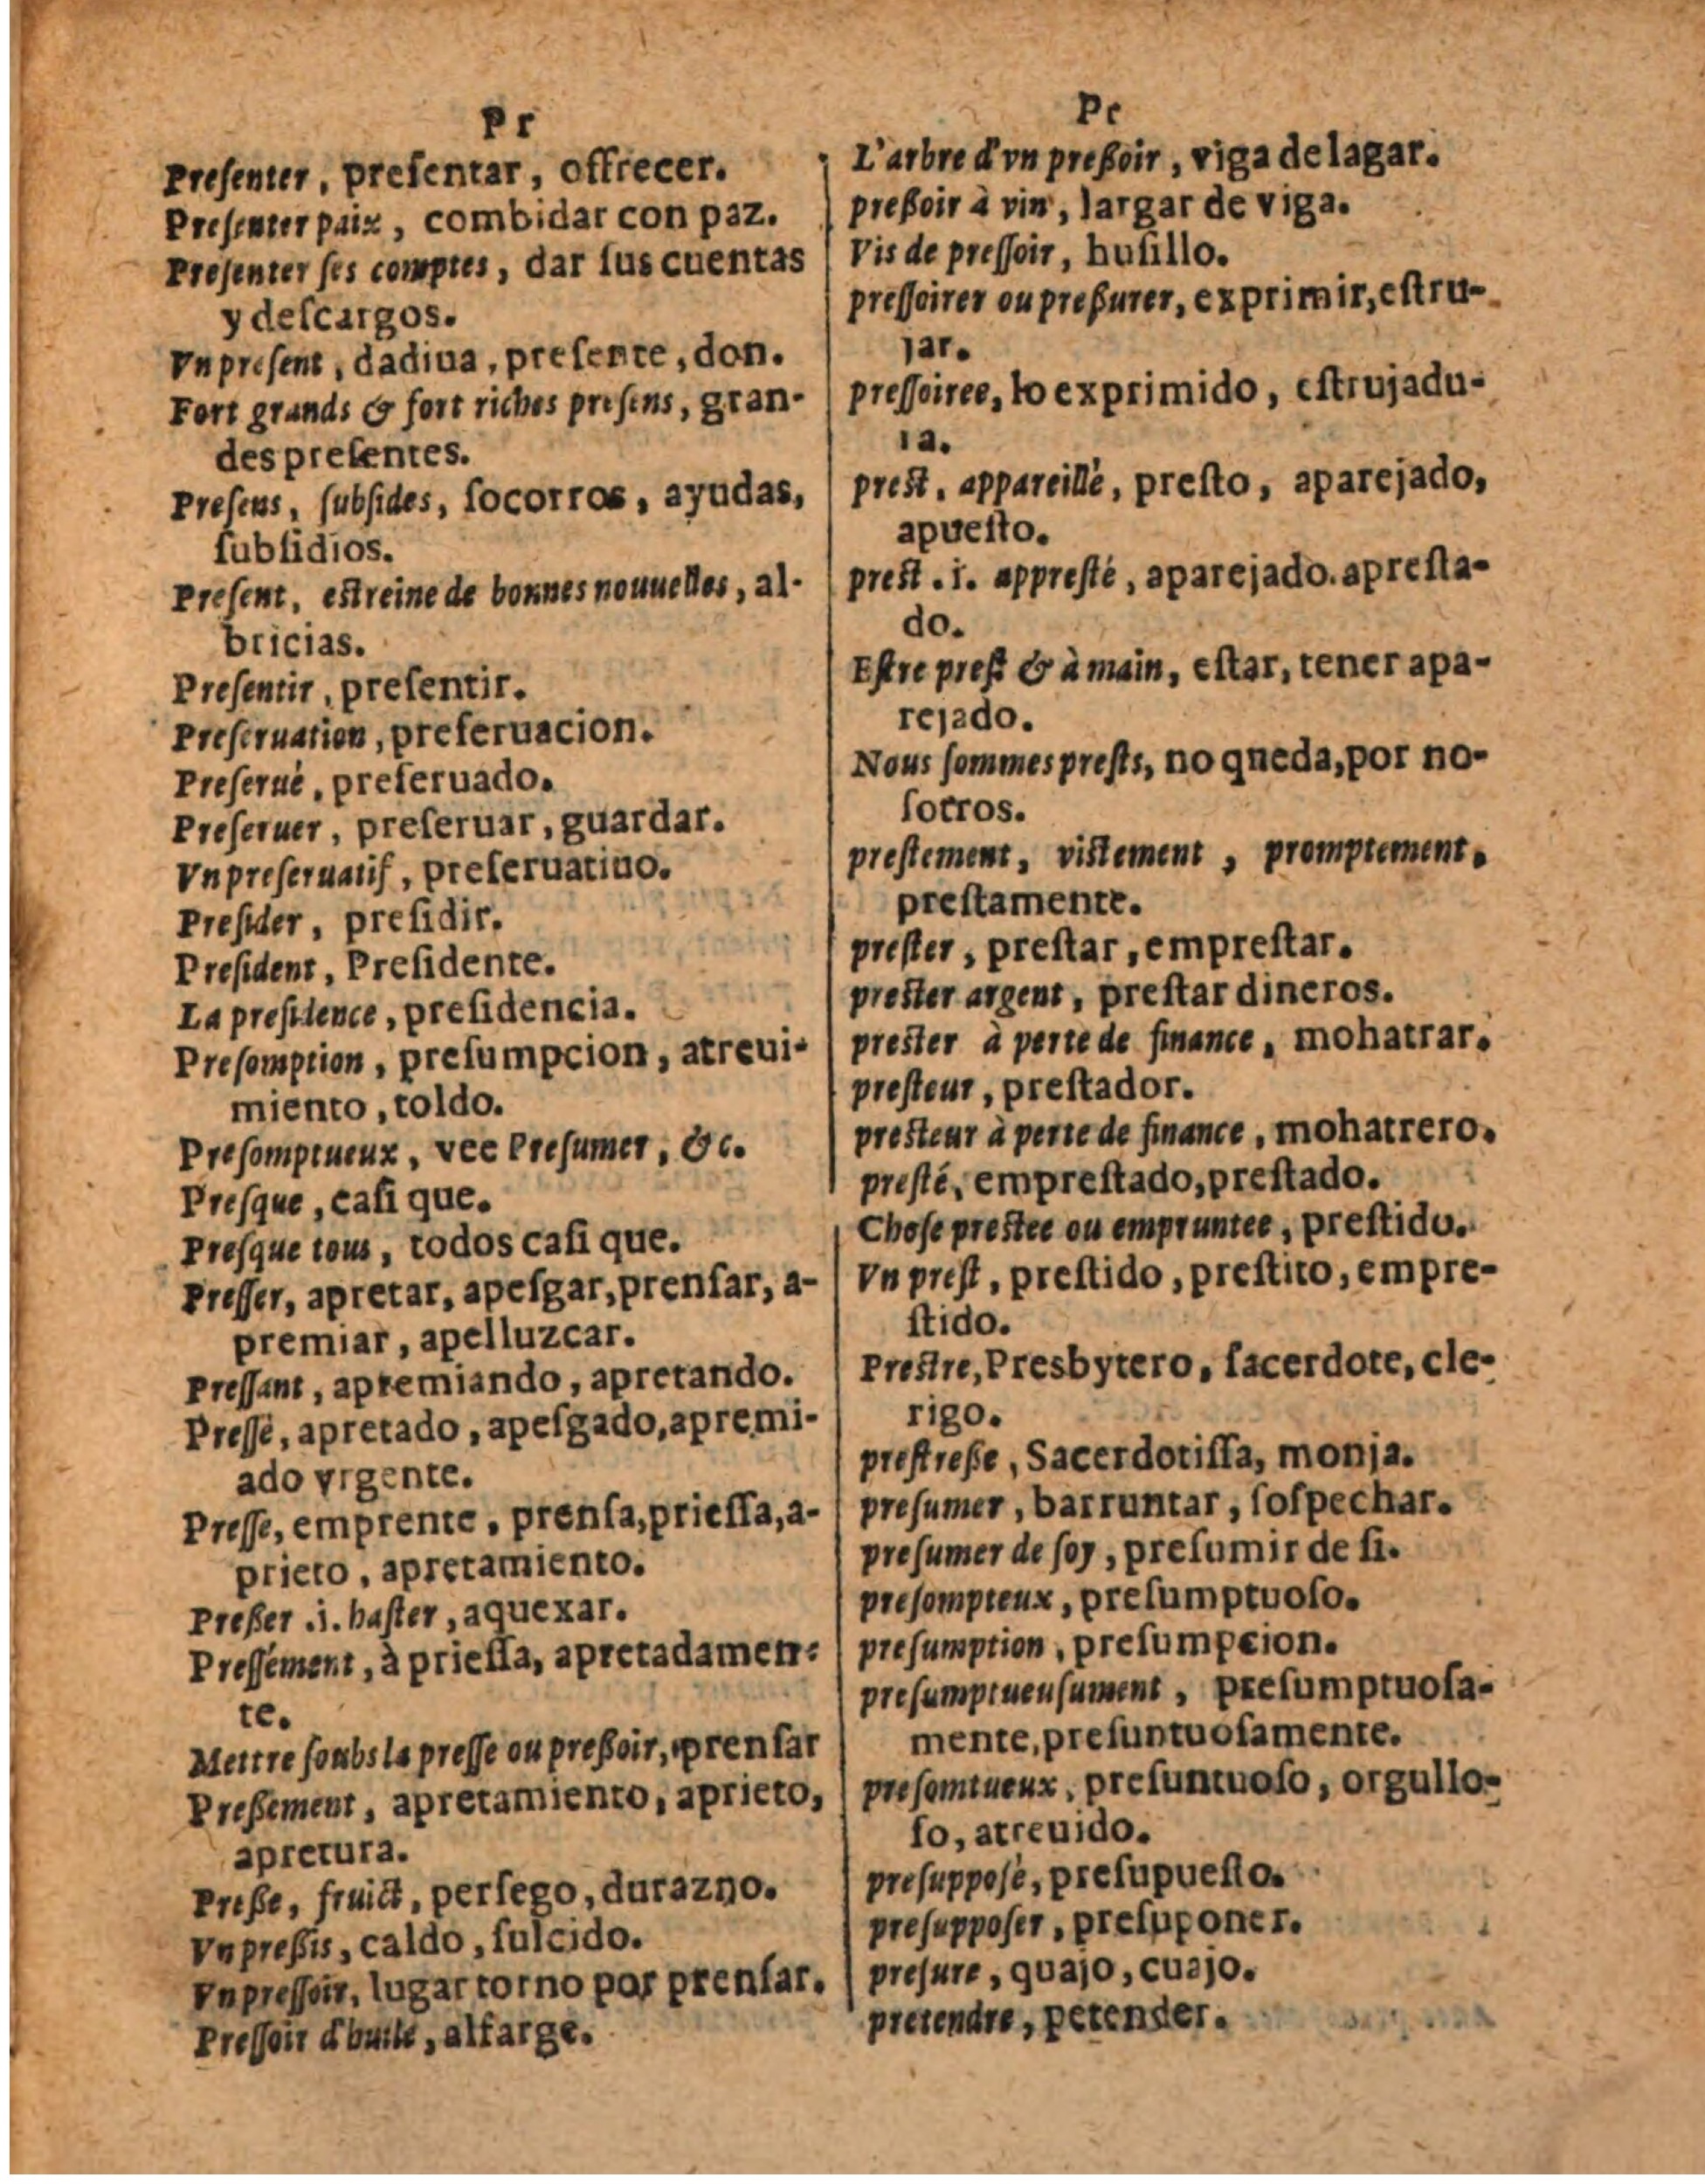 Pr
Preſenter, preſentar, offrecer.
Preſenter paix, combidar con paz.
Preſenter ſes comptes, dar ſus cuentas
y deſcargos.
Vn preſent, dadiua, preſente, don.
Fort grands & fort riches preſens, gran-
des preſentes.
Preſens, ſubſides, ſocorros, ayudas,
ſubſidios.
Preſent, eſtreine de bonnes nouuelles, al-
bricias.
Preſentir, preſentir.
Preſeruation, preſeruacion.
Preſerué, preſeruado.
Preſeruer, preſeruar, guardar.
Vn preſeruatif, preſeruatiuo.
Preſider, preſidir.
Preſident, Preſidente.
La preſidence, preſidencia.
Preſomption, preſumpcion, atreui-
miento, toldo.
Preſomptueux, vee Preſumer, &c.
Preſque, caſi que.
Preſque tous, todos caſi que.
Preſſer, apretar, apeſgar, prenſar, a-
premiar, apelluzcar.
Preſſant, apremiando, apretando.
Preſſé, apretado, apeſgado, apremi-
ado vrgente.
Preſſe, emprente, prenſa, prieſſa, a-
prieto, apretamiento.
Preßer .i. haſter, aquexar.
Preſſément, à prieſſa, apretadamen-
te.
Mettre ſoubs la preſſe ou preßoir, prenſar
Preßement, apretamiento, aprieto,
apretura.
Preße, fruict, perſego, durazno.
Vn preßis, caldo, ſulcido.
Vn preſſoir, lugar torno por prenſar.
Preſſoir d'huile, alfarge.
Pr
L'arbre d'vn preßoir, viga de lagar.
preßoir à vin, largar de viga.
Vis de preſſoir, huſillo.
preſſoirer ou preßurer, exprimir, eſtru-
jar.
preſſoiree, lo exprimido, eſtrujadu-
ra.
preſt, appareillé, preſto, aparejado,
apueſto.
preſt .i. appreſté, aparejado. apreſta-
do.
Eſtre preſt & à main, eſtar, tener apa-
rejado.
Nous ſommes preſts, no qneda, por no-
ſotros.
preſtement, viſtement, promptement,
preſtamente.
preſter, preſtar, empreſtar.
preſter argent, preſtar dineros.
preſter à perte de finance, mohatrar.
preſteur, preſtador.
preſteur à perte de finance, mohatrero.
preſté, empreſtado, preſtado.
Choſe preſtee ou empruntee, preſtido.
Vn preſt, preſtido, preſtito, empre-
ſtido.
Preſtre, Presbytero, ſacerdote, cle-
rigo.
preſtreße, Sacerdotiſſa, monja.
preſumer, barruntar, ſoſpechar.
preſumer de ſoy, preſumir de ſi.
preſompteux, preſumptuoſo.
preſumption, preſumpcion.
preſumptueuſument, preſumptuoſa-
mente, preſuntuoſamente.
preſomtueux, preſuntuoſo, orgullo-
ſo, atreuido.
preſuppoſé, preſupueſto.
preſuppoſer, preſuponer.
preſure, quajo, cuajo.
pretendre, petender.